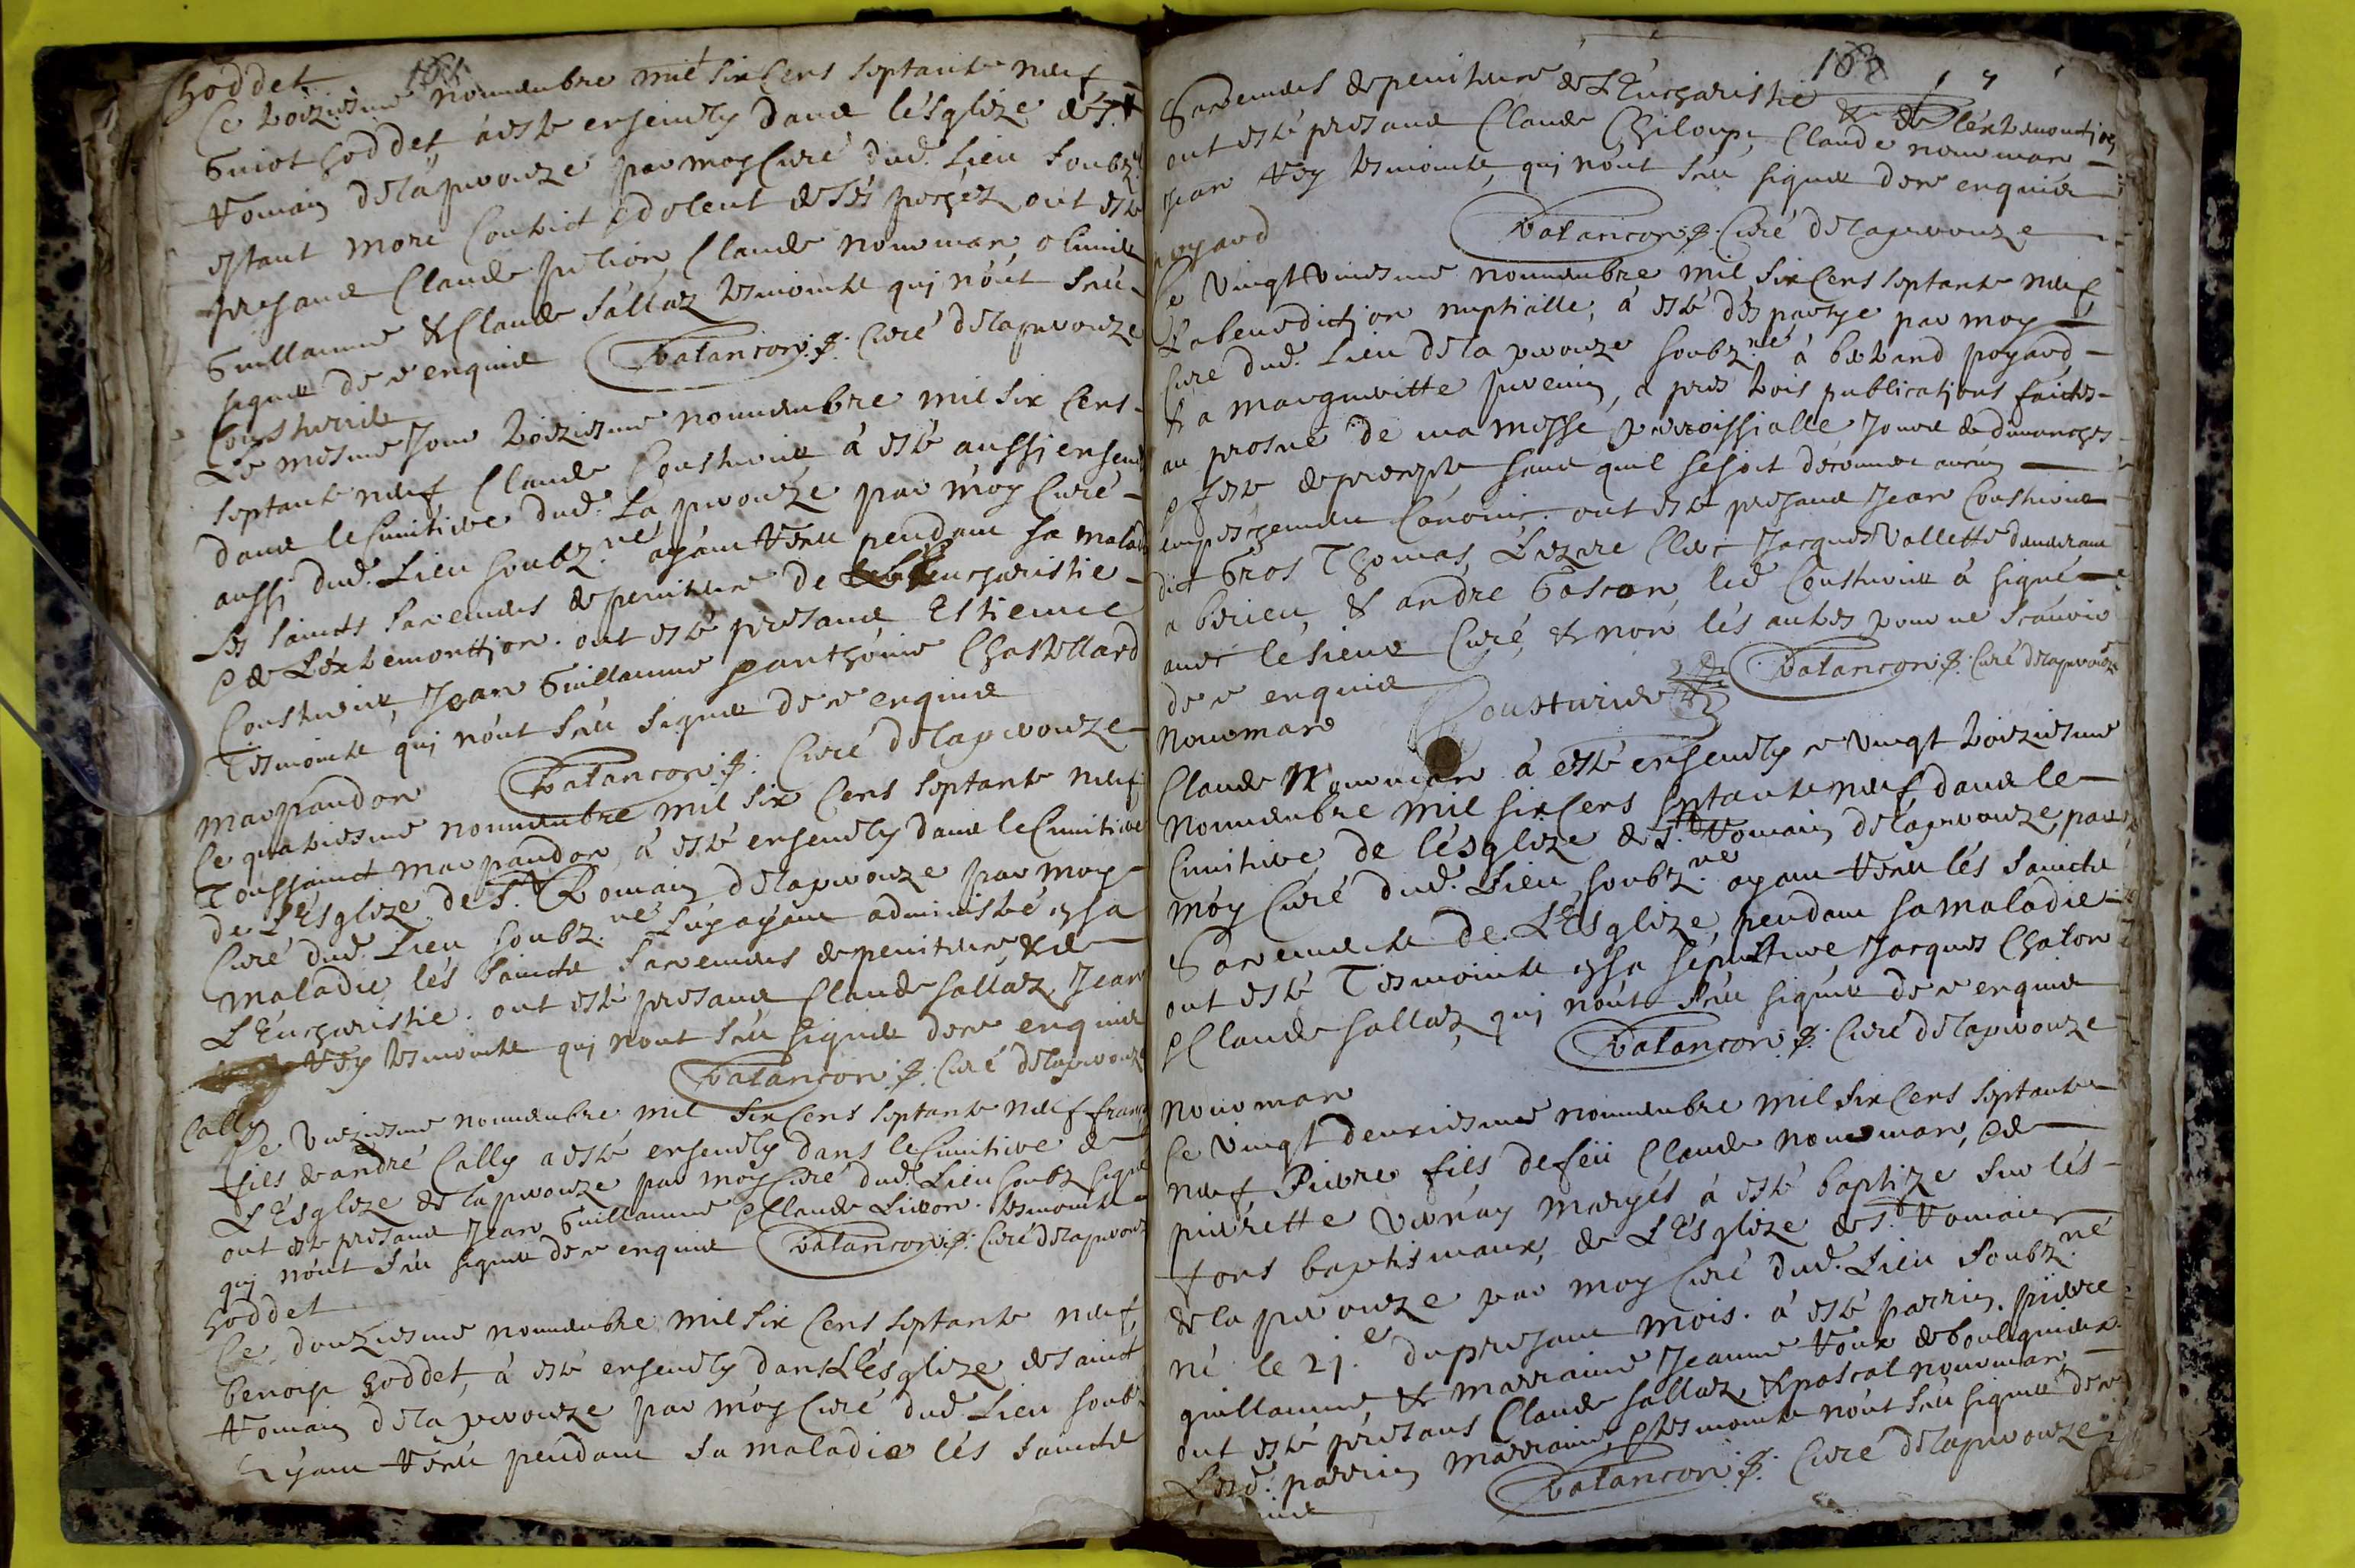 Goddet
Ce troiziesme nouuenbre mil six Cens septante neuf
Guiot Goddet à esté enseuely dans l'ésglize de St
Romain de lá peirouze par moy Curé dud. Lieu soubz.né
estant mort Contrict et dolent de sés pechéz ont esté
presans Claude Claude nouuman
Guillaume & Claude Sallaz tesmointz quj n'ont sceu
signer de ce enquis Balancon p. Curé de la peirouze
Cousturier
Le mesme Jour troiziesme nouuenbre mil six Cens
septante neuf Claude Cousturier à esté aussj enseuely
dans le Cimitiere dud. La peirouze par moy Curé
aussi dud. Lieu soubz.né ayant receu pendant sa maladie
les saincts Sacremens de penitence de l'eucharistie
et de L'éxtremonttjon. ont esté presans Estienne
Cousturier, Jean Guillaume et anthoine Chastellard
Tesmointz quj n'ont sceu signer de ce enquis
Balancon p. Curé de la peirouze
marpaudon
Ce quatriesme nouuenbre mil six Cens septante neuf
Toussainct marpaudon à esté enseuely dans le Cimitiere
de L'Esglize de St Romain de la peirouze par moy
Curé dud. Lieu soubz.né Luy ayant administré en sa
maladie lés saincts Sacremens de penitence & de
L'Eucharistie. ont esté presans Claude Sallaz, Jean
Rey tesmointz quj n'ont sceu signer de ce enquis
Balancon p. Curé de la peirouze
Cally
Ce unziesme nouuenbre mil six Cens septante neuf
fils de andré Cally a esté enseuely dans le Cimitiere de
L'Esglize de la peirouze par moy Curé dud. Lieu soubz signé
ont esté presans Jean Guillaume et Claude tesmointz
quj n'ont sceu signer de ce enquis Balancon p. Curé de la peirouze
Goddet
Ce douziesme nouuenbre mil six Cens septante neuf
benoist Goddet, à esté enseuely dans L'ésglize de sainct
Romain de la peirouze par moy Curé dud. Lieu soubz.
Ayant receu pendant sa maladie lés saincts
168
Sacremens de penitence de L'Eucharistie & de l'éxtremonctjon
ont esté presans Claude Chiloup, Claude nouuman
Jean Rey tesmointz, quj n'ont sceu signer de ce enquis
Balancon p. Curé de la peirouze
poyard
Ce vingt uniesme nouuenbre mil six Cens septante neuf
La benedictjon nuptialle, à esté départye par moy
Curé dud. Lieu de la peirouze soubz.né à poyard
& a margueritte après trois publicatjons faictes
au prosne de ma messe parroissialle Jours de dimanches
et feste de precepte sans quil se soit décounert aucun
empeschement Canonic. ont esté presans Jean Cousturier
dict Gros Thomas, Clerc Jacques Vallette demeurant
a birieu, & andre Gascon led Cousturier à signé
auec le sieur Curé, & non lés autres pour ne scauoir
de ce enquis Cousturier Balancon p. Curé de la peirouze
nouuman
Claude Nouuman à esté enseuely ce vingt troiziesme
nouuenbre mil six Cens septante neuf dans le
Cimitiere de l'ésglize de St Romain de la peirouze, par
moy Curé dud. Lieu, soubz.né ayant receu lés saincts
Sacrementz de L'Esglize, pendant sa maladie
ont esté Tesmointz en sa sépulture, Jacques Chaton
et Claude Sallaz, quj n'ont sceu signer de ce enquis
Balancon p. Curé de la peirouze
nouuman
Ce vingt deuxiesme nouuenbre mil six Cens septante
neuf Pierre fils de feu Claude nouuman, et de
pierrette mariés à esté baptize sur lés
fons baptismaux, de L'Esglize de St Romain
de la peirouze par moy Curé dud. Lieu soubz.né
né le 21.e du presant mois. à esté parrin, pierre
guillaume & marraine Jeanne Roux de bouligneux
ont esté presans Claude Sallaz & pascal nouuman
Lesd. parrin marraine et tesmointz n'ont sceu signer de ce
Balancon p. Curé de la peirouze